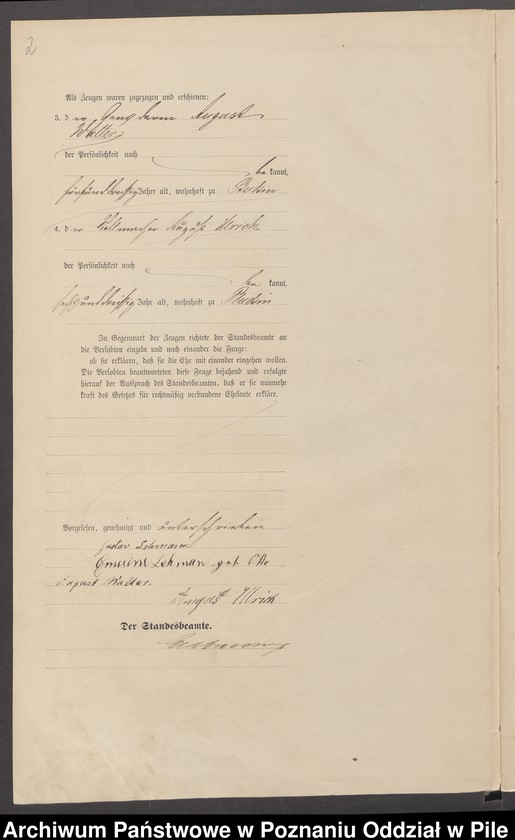 2
Als Zeugen waren zugezogen und erschienen:
3. der Gensdarm August
Walter
der Persönlichkeit nach
be kannt,
fünfunddreissig Jahr alt, wohnhaft zu Budsin
4. der August Ulrich
der Persönlichkeit nach
be kannt,
Jahr alt, wohnhaft zu Budsin
In Gegenwart der Zeugen richtete der Standesbeamte an
die Verlobten einzeln und nach einander die Frage:
ob sie erklären, daß sie die Ehe mit einander eingehen wollen.
Die Verlobten beantworteten diese Frage bejahend und erfolgte
hierauf der Ausspruch des Standesbeamten, daß er sie nunmehr
kraft des Gesetzes für rechtmäßig verbundene Eheleute erkläre.
Vorgelesen, genehmigt und unterschrieben
Gustav Lehmann
Lehman geb. Otto
August Walter.
August Ulrich
Der Standesbeamte.
Archiwum Państwowe w Poznaniu Oddział w Pile